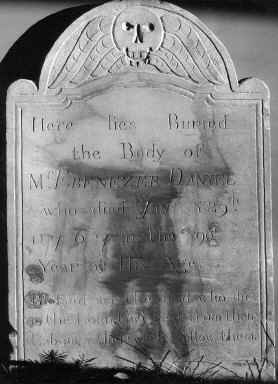 Here lies Buried
the Body of
Mr EBENEZER DANIEL
who died
in the
Year of His Age.
are the dead who die
the Lord they rest from their
Labours their works follow them.